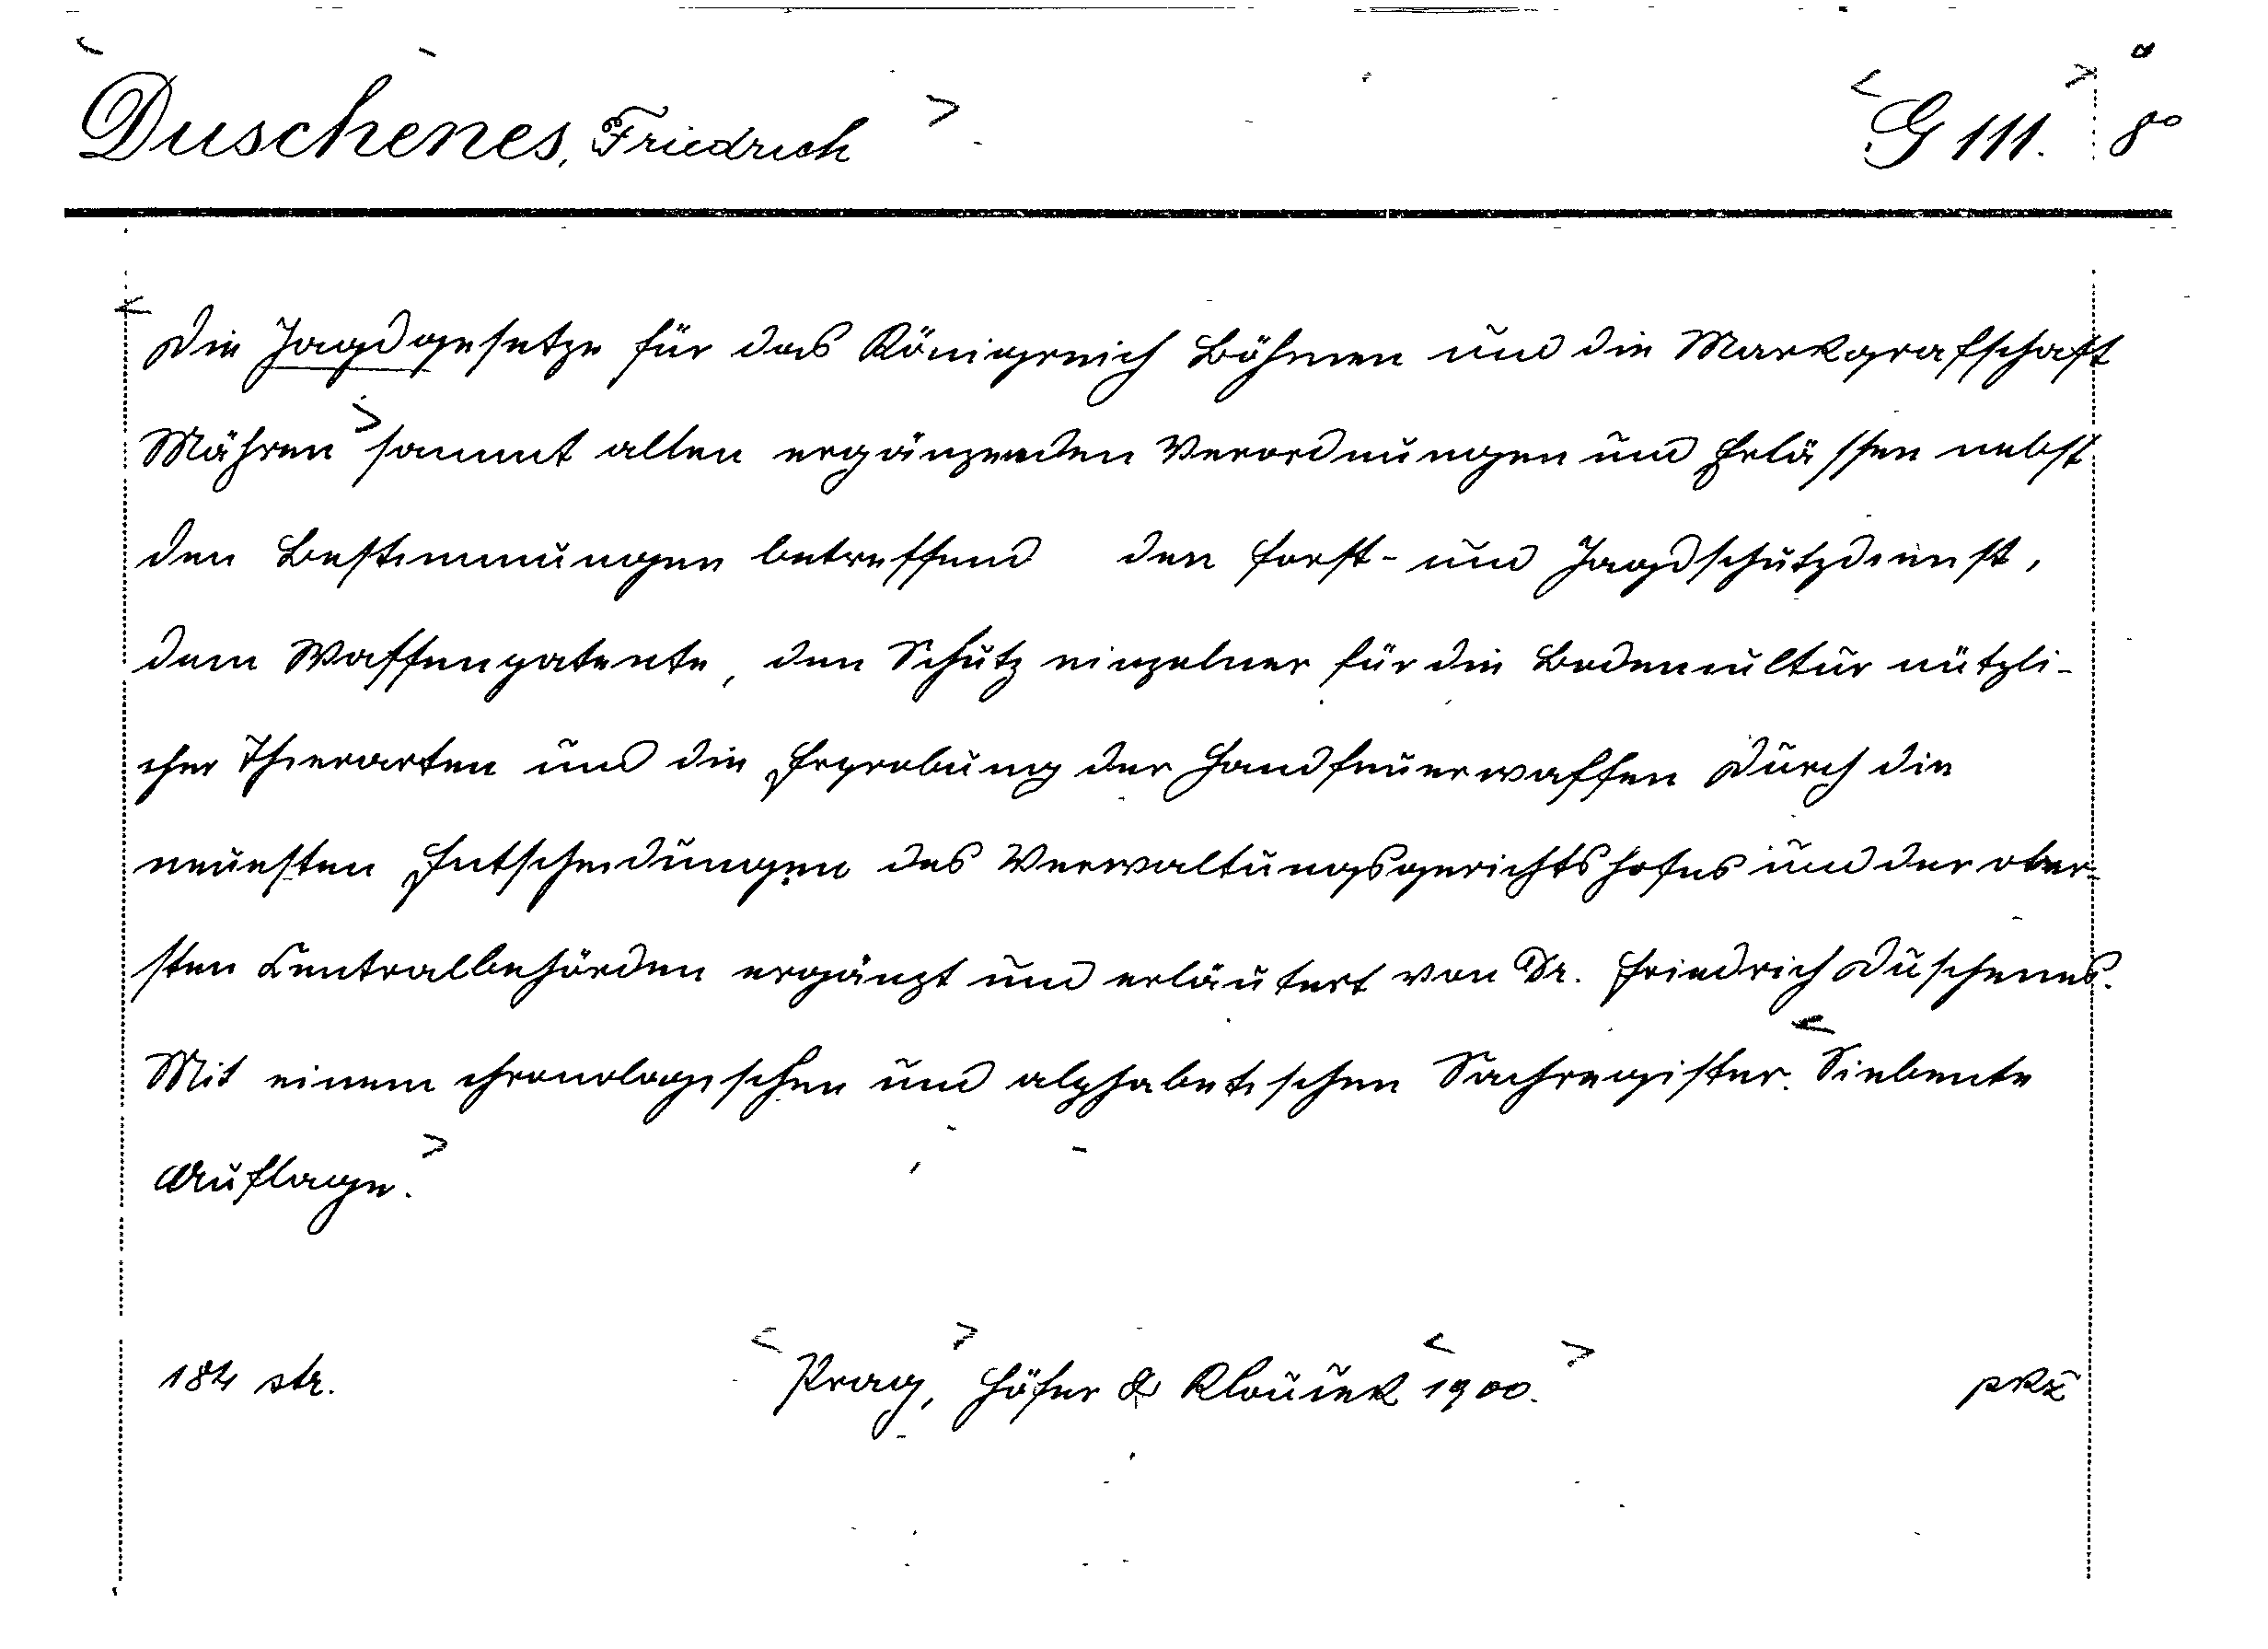 Duschenes, Friedrich
G 111. 8°
Die Jagdgesetze für das Königreich Böhmen und die Markgrafschaft
Mähren sammt allen ergänzenden Verordnungen und Erlässen nebst
den Bestimmungen betreffend den Forst- und Jagdschutzdienst,
dem Waffenpatente, den Schutz einzelner für die Bodencultur nützli-
cher Thierarten und die Erprobung der Handfeuerwaffen durch die
neuesten Entscheidungen des Verwaltungsgerichtshofes und der ober-
sten Centralbehörden ergänzt und erläutert von Dr. Friedrich Duschenes.
Mit einem chronologischen und alphabetischen Sachregister. Siebente
Auflage.
184 str. Prag, Höfer & Klouček 1900.